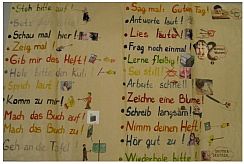 Steh bitte auf!
Setz
Schau mal her!
Zeig mal!
Gib mir das Heft!
Hole bitte den
Sprich laut
Komm zu mir!
Mach das Buch auf!
Mach das Buch zu!
Geh an die Tafel!
Sag mal: Guten Tag!
Antworte laut!
Lies lauter!
Frag noch einmal!
Lerne fleißig!
Sei still!
Arbeite schnell!
Zeichne eine Blume!
Schreib langsam!
Nimm deinen Heft!
Hör gut zu!
Wiederhole bitte!